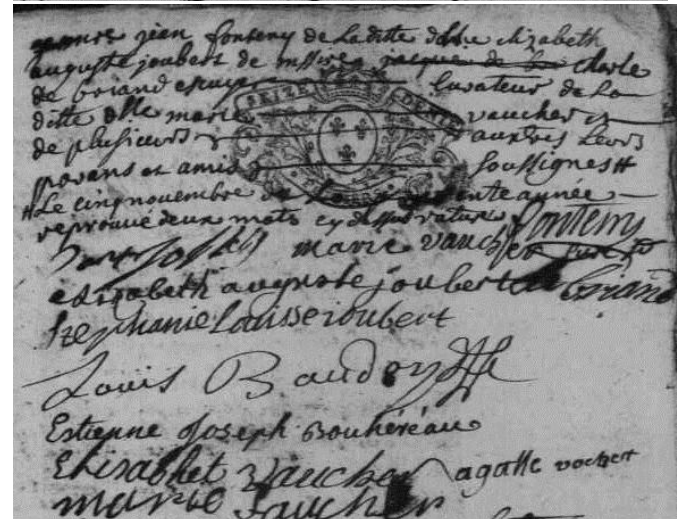 jean fonteny de laditte dlle elizabeth
auguste joubert de messire jacque de charle
de briand escuyer curateur de la
ditte dlle marie vaucher et
de plusieurs autres leurs
parans et amis soussignes #
# Le cinq novembre de presente année
reprouvé deux mots cy dessus raturé fonteny
marie vaucher
elizabeth auguste joubert de briand
stephanie Louisse ioubert
Louis Baudoy
Estienne Joseph Bouhéréau
Elisabhet Vaucher agatte vochert
marie vaucher
SEIZE DEN